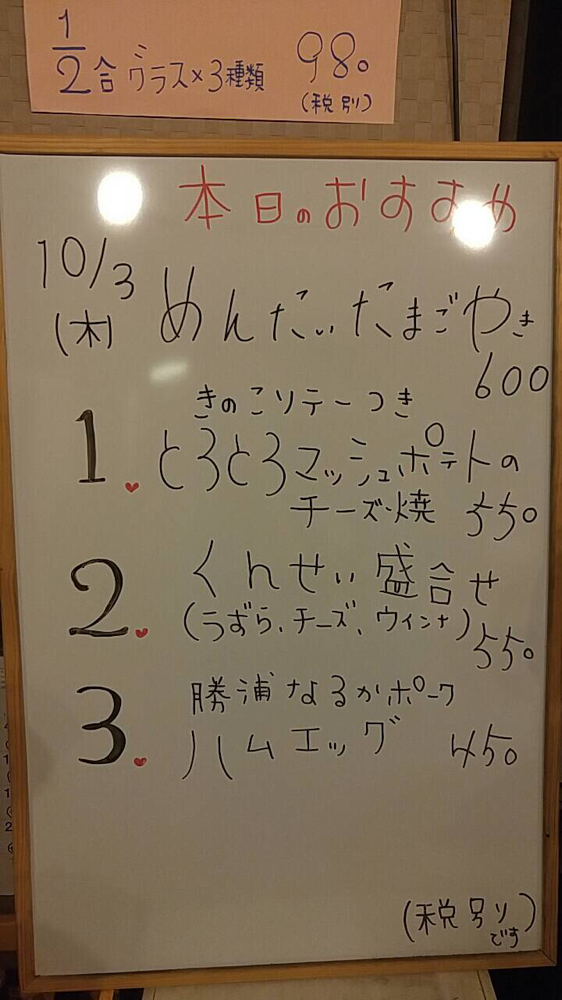 1/2合グラス×3種類 980
(税別)
本日のおすすめ
10/3
(木)
めんたいたまごやき
600
きのこソテーつき
1. とろとろマッシュポテトの
チーズ焼 550
2. くんせい盛合せ
(うずら、チーズ、ウインナ) 550
勝浦なるかポーク
3. ハムエッグ 450
(税別)
です